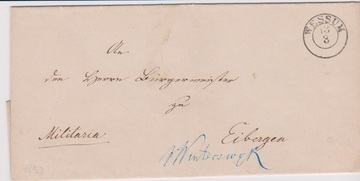 WESSUM
13
3
An
den Herrn Bürgermeister
zu
Eibergen
Militaria
Winterswyk